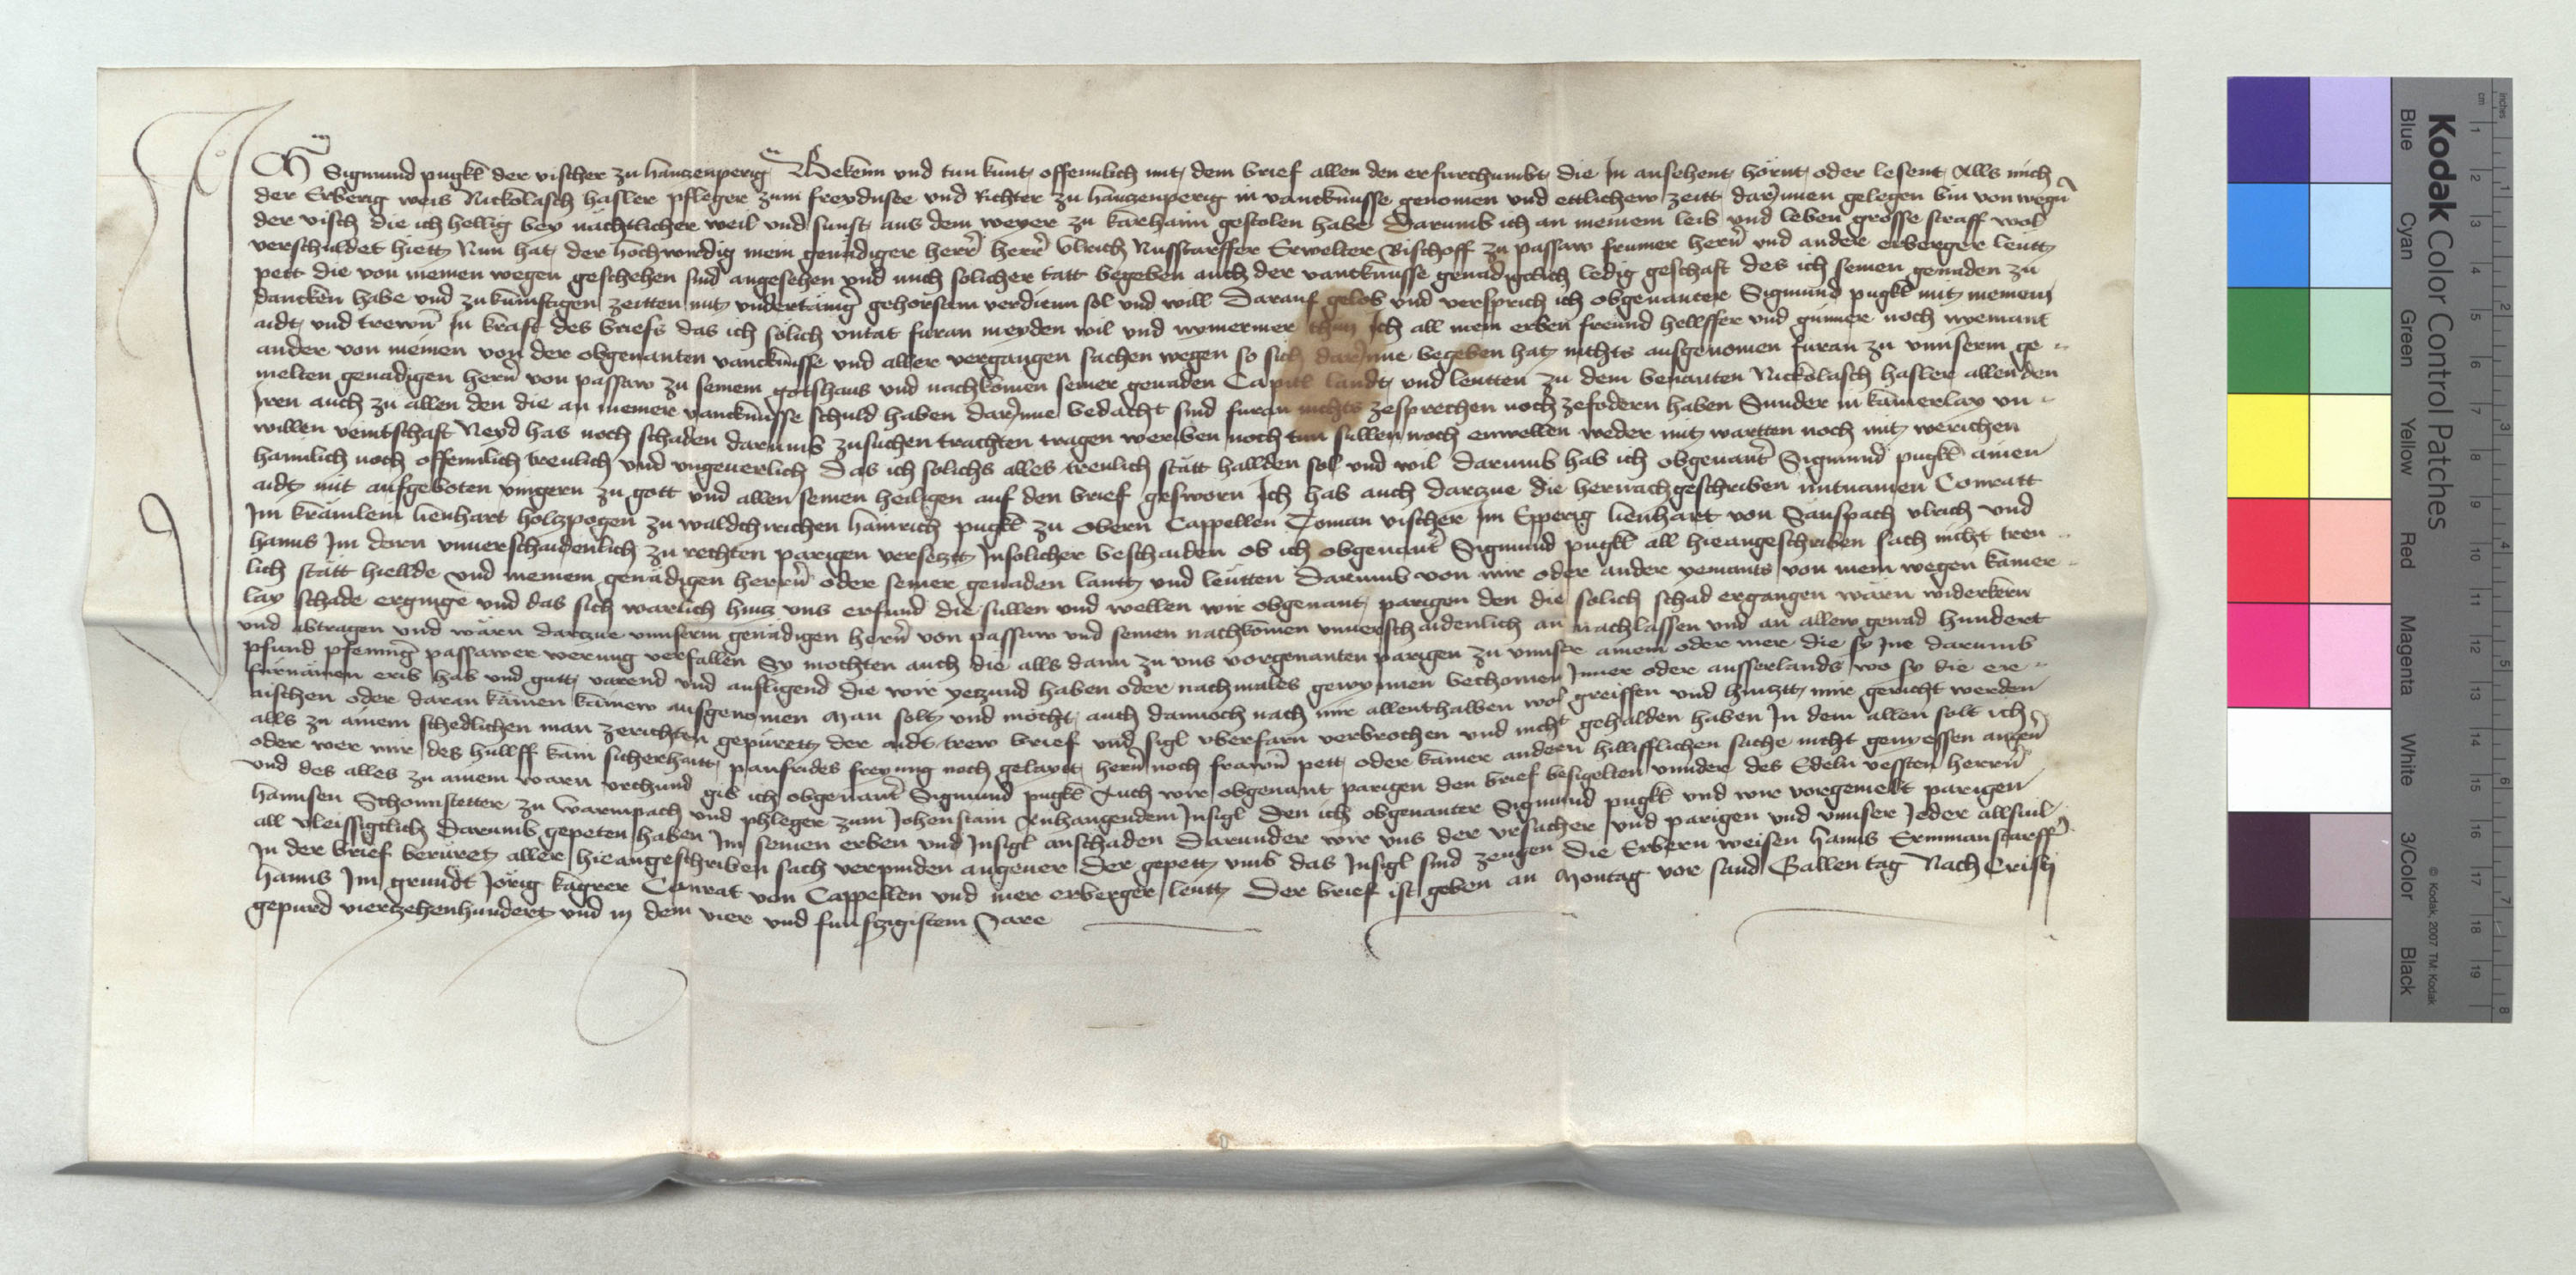 Ich Sigmund pugkl der vischer zu hauzenperig Bekenn und tun kunt offennlich mit dem brief allen den er furchumbt die In ansehent hörnt oder lesent Alls mich
der Erberig weis Nickolasch hasler pfleger zum freydnsee und Richter zu hauzenperig in vanckhnusse genomen und ettlichew zeitt darjnnen gelegen bin von wegn
der visch die ich hellig bey nachtlicher weil und sunst aus dem weyer zu karhaim gestolen habe Darumb ich an meinem leib und leben grosse straff wol
verschuldet hiett Nun hat der hochwirdig mein genädiger herr herr Vlrich Nussdarffer Erwelter Bischoff zu passaw frumer hern und ander erberger leutt
pett die von meinen wegen geschehen sind angesehen und mich solicher tatt begeben auch der vanckhnusse genädigclich ledig geschaft des ich seinen genaden zu
dancken habe und zukumftigen zeitten mit undertänig gehorsam verdienn sol und will Darauf gelob und versprich ich obgenanter Sigmund pugkl mit meinem
aidt und trewn In kraft des briefs das ich solich untat furan meyden wil und nymermer thun Ich all mein erben freund hellffer und günner noch nyemant
ander von meinen von der obgenanten vancknusse und aller vergangen sachen wegen so sich darjnne begeben hat nichts ausgenomen furan zu unnserm ge
melten genadigen hern von passaw zu seinem gotshaus und nachkomen seiner genaden Capitl landt und leutten zu dem benanten Nickolasch hasler allen den
Iren auch zu allen den die an meiner vancknusse schuld haben darjnne bedacht sind furan nichts zesprechen noch zefodern haben Sunder in kainerlay un
willen veintschaft Neyd has noch schaden darumb zusuchen trachten tragen werben noch tun sullen noch enwellen weder mit wartten noch mit werichen
haimlich noch offennlich trewlich und ungeuerlich Das ich solichs alles trewlich stätt hallden sol und wil Darumb hab ich obgenant Sigmund pugkl ainen
aidt mit aufgeboten vingern zu gott und allen seinen heiligen auf den brief gesworn Ich hab auch darczue die hernachgeschriben mitnamen Conratt
Im kramlein lienhart holzpogen zu waldchirichen hainrich pugkl zu obern Cappellen Toman vischer Im Epperig lienhart von Sanspach ulrich und
hanns Im dorn unuerschaidenlich zu rechten parigen versetzt Insolicher beschaiden ob ich obgenant Sigmund pugkl all hieangeschriben sach nicht trew
lich stätt hiellde und meinem genädigen herrn oder seiner genaden lantt und leutten Darumb von mir oder ander yemants von mein wegen kainer
lay schade erginge und das sich warlich hinz uns erfund die sullen und wellen wir obgenant parigen den die solich schad ergangen wärn widerkern
und abtragen und wärn darczue unnserm genädigen hern von passaw und seinen nachkomen unuerschaidenlich an nachlassen und an allew genad hunderet
pfund pfenning passawer werung verfallen Sy mochten auch die alls dann zu uns vorgenanten parigen zu unnser ainem oder mer die sy Ine darumb
furnämen erib hab und gutt varend und aufligend die wir yetzund haben oder nachmales gewynnen bechomen Inner oder ausserlands wo sy die er
aischen oder daran kämen kainew ausgenomen Man solt und möcht auch dannoch nach mir allenthalben wol greiffen und hinztt mir gericht werden
alls zu ainem schedlichen man zerichten gepürett der aidt trew brief und sigl uberfarn verbrochen und nicht gehalden haben In dem allen solt ich
oder wer mir des hullff kain sicherhaitt panfrides freyung noch gelaytt hern noch frawn pett oder kainer andern hillifflichen sache nicht geniessen angeu
und des alles zu ainem waren urchund gib ich obgenant Sigmund pugkl Auch wir obgenant parigen den brief besigelten unnder des Edeln vessten herrn
hannsen Schonnstetter zu warmpach und phleger zum Johenstain Anhangendem Insigl Den ich obgenanter Sigmund pugkl und wir vorgemelt parigen
all vleissigclich darumb gepeten haben Im seinen erben und Insigl anschaden Darunder wir uns der ursacher und parigen und unnser Jeder allsuil
In der brief berüret aller hieangeschriben sach verpinden angeuer Der gepett umb das Insigl sind zeugen Die Erbern weisen hanns Ermmanstarff
hanns Im grundt Jörig kagrer Conrat von Cappellen und mer erberger leutt Der brief ist geben an Montag vor sand Gallen tag Nach Cristi
gepurd vierzehenhundert und in dem vier und funfzigistem Jare
Kodak Color Control Patches
Blue Cyan Green Yellow Red Magenta White 3/Color Black
© Kodak, 2007 TM: Kodak
Inches 1 2 3 4 5 6 7 8
cm 1 2 3 4 5 6 7 8 9 10 11 12 13 14 15 16 17 18 19